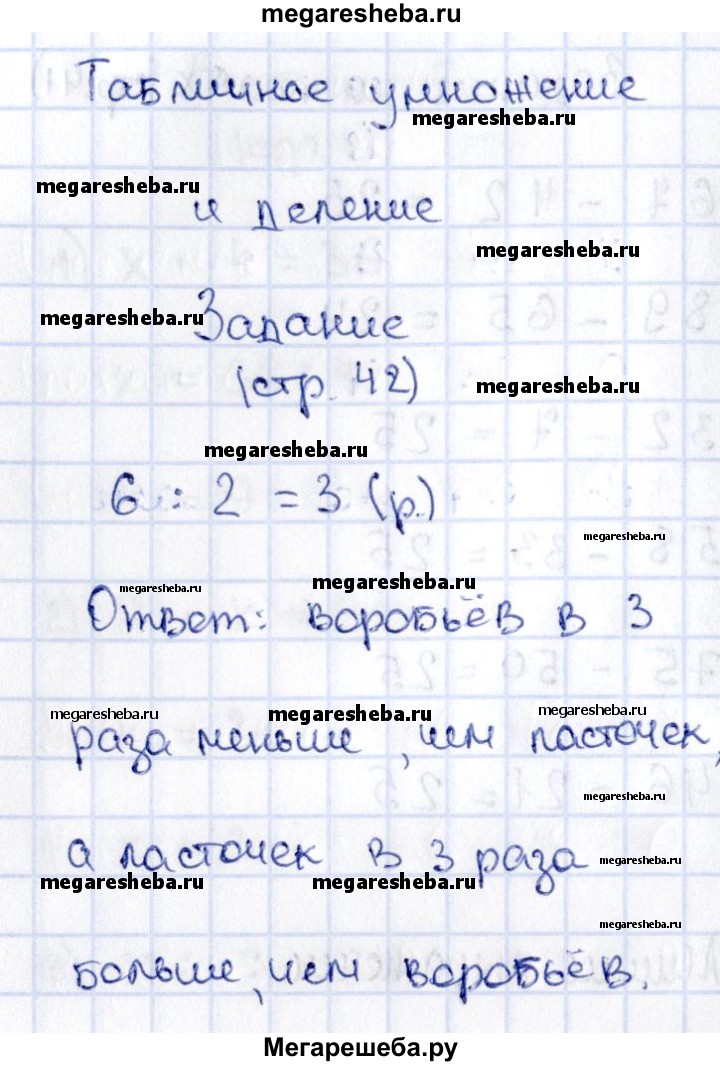 megaresheba.ru
Табличное умножение
megaresheba.ru
megaresheba.ru
и деление
megaresheba.ru
megaresheba.ru
Задание
(стр. 42)
megaresheba.ru
megaresheba.ru
6 : 2 = 3 (р.)
megaresheba.ru
megaresheba.ru
megaresheba.ru
Ответ: воробьёв в 3
megaresheba.ru
megaresheba.ru
megaresheba.ru
раза меньше, чем ласточек,
megaresheba.ru
а ласточек в 3 раза
megaresheba.ru
megaresheba.ru
megaresheba.ru
megaresheba.ru
больше, чем воробьёв.
Мегарешеба.ру